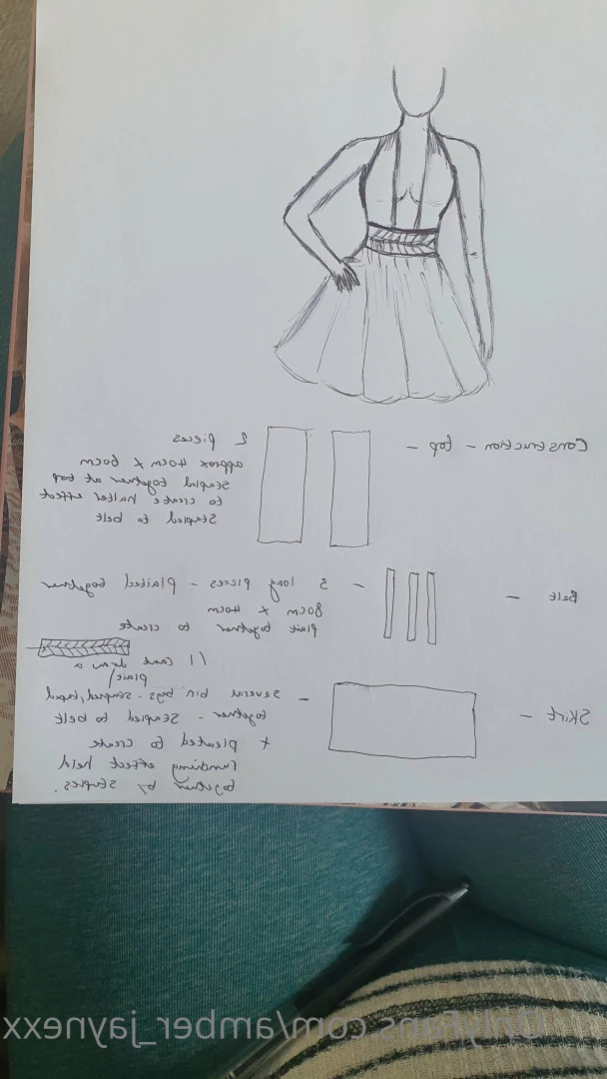 Construction - top -
2 pieces
approx 40cm x 60cm
stapled together at top
to create halter effect
Stapled to belt
Belt -
- 3 long pieces - plaited together
80cm x 40cm
plait together to create
(I cant draw a
plait)
Skirt -
- several bin bags - stapled, taped
together - stapled to belt
+ pleated to create
effect held
together by staples.
OnlyFans.com/amber_jaynexx